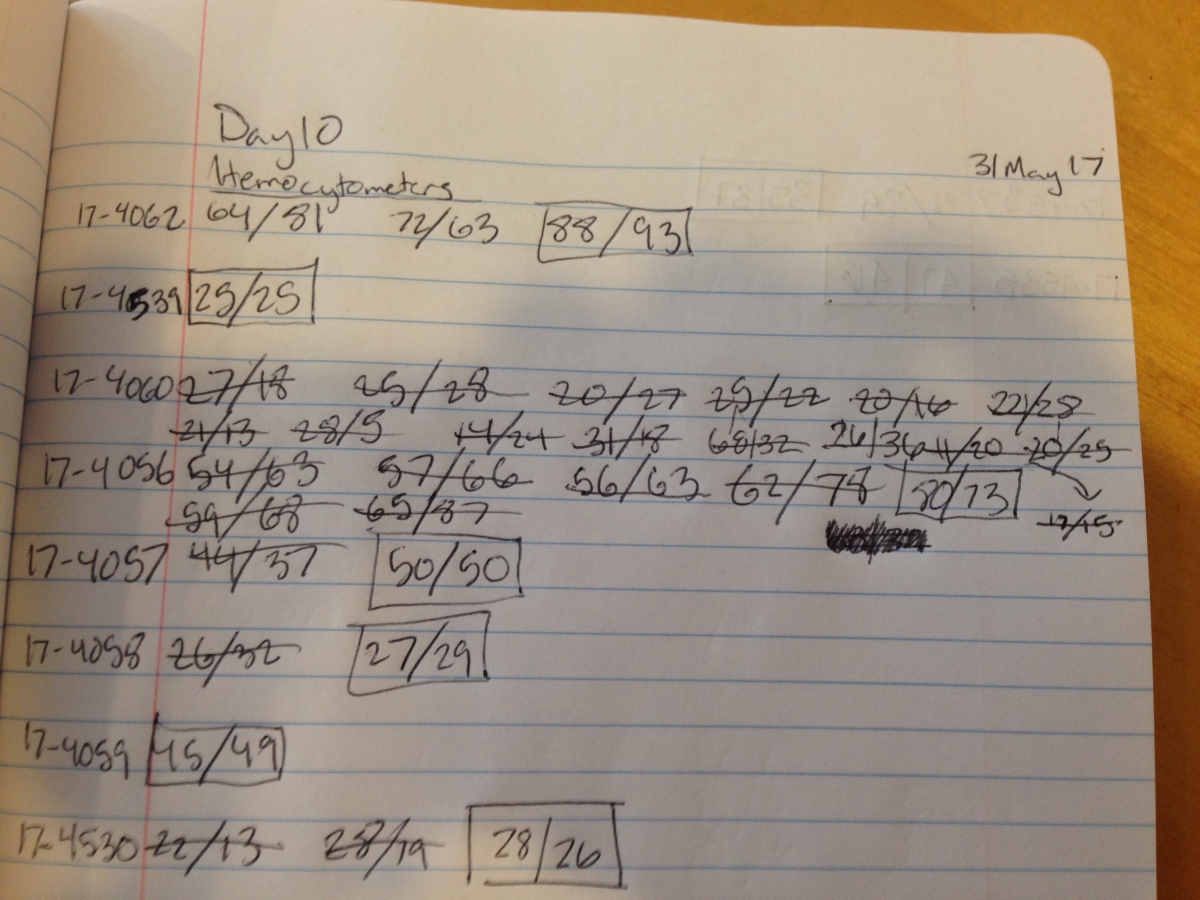 Day 10
31 May 17
Hemocytometers
17-4062 64/81 72/63 88/93
17-4539 25/25
17-4060 27/18 25/28 20/27 25/22 20/16 22/28
21/13 28/5 14/24 31/18 68/32 26/36 11/20 20/25
17-4056 54/63 57/66 56/63 62/78 80/73
59/68 65/87 17/15
17-4057 44/37 50/50
17-4058 26/32 27/29
17-4059 45/49
17-4530 22/13 28/19 28/26